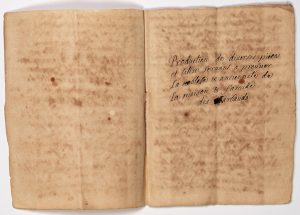 Production de diverses pieces
et titres servant a prouver
la noblesse et ancienneté de
la maison de
des